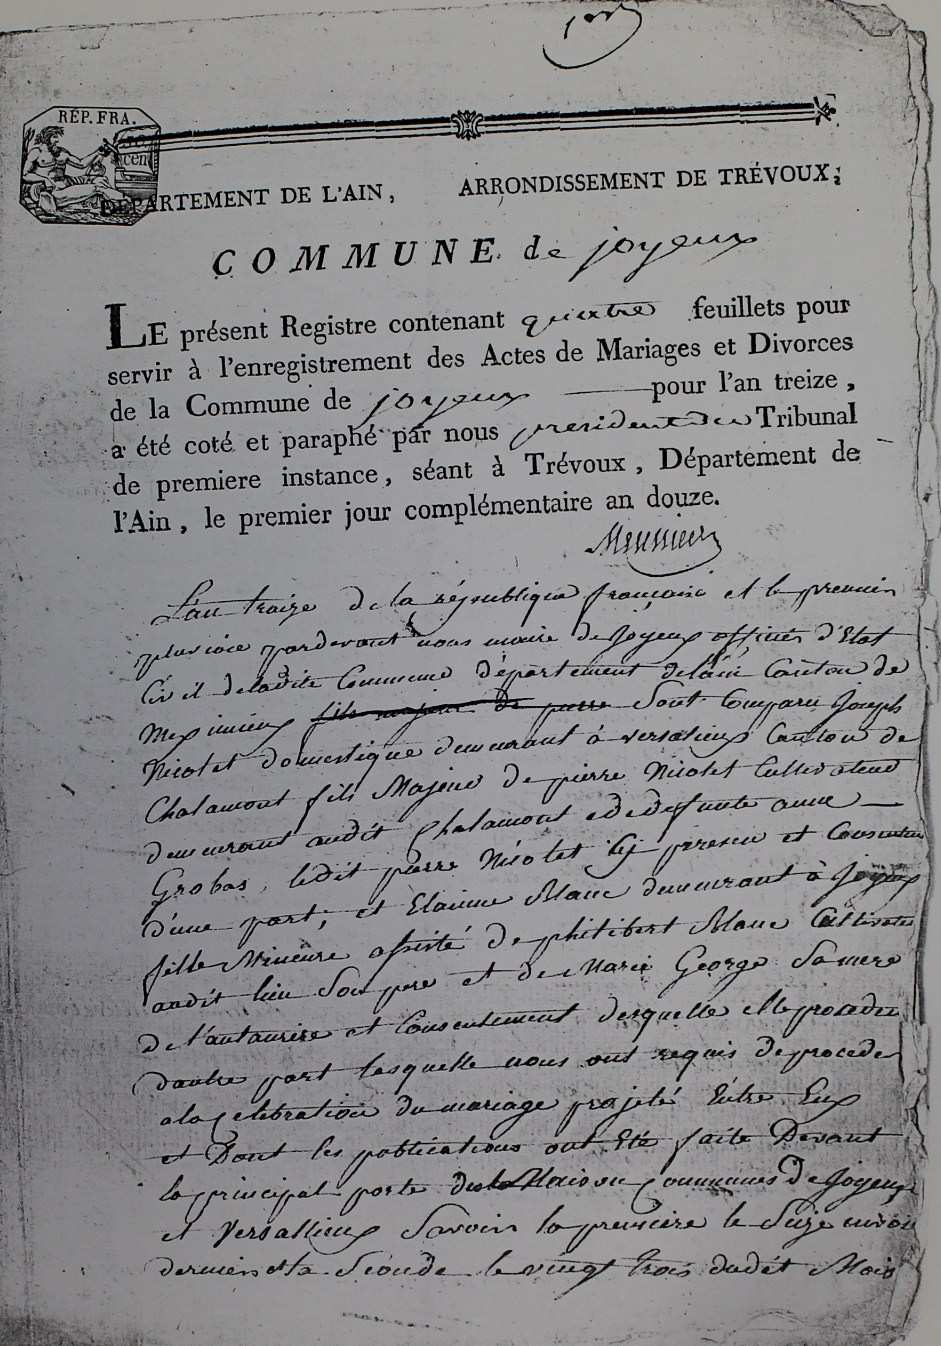 RÉP. FRA.
cen
DÉPARTEMENT DE L'AIN, ARRONDISSEMENT DE TRÉVOUX;
COMMUNE de joyeux
LE présent Registre contenant quatre feuillets pour
servir à l'enregistrement des Actes de Mariages et Divorces
de la Commune de joyeux pour l'an treize,
a été coté et paraphé par nous president du Tribunal
de premiere instance, séant à Trévoux, Département de
l'Ain, le premier jour complémentaire an douze.
L'an traize de la république française et le premier
pluviose pardevant nous maire de Joyeux officier d'Etat
Civil de ladite Commune département delain Canton de
Meximieux fils majeur de pierre Sont Comparu Joseph
Nicolet domestique demeurant à versalieux Canton de
Chalamont fils Majeur de pierre Nicolet Cultivateur
demeurant audit Chalamont et de defunte anne
Grobas, ledit pierre Nicolet icy present et Consentan
d'une part; et Etainne Blanc demeurant à Joyeux
fille Mineure assisté de philibert Blanc Cultivateur
audit lieu Son pere et de Marie George Sa mere
De l'autaurire et Consentement desquelle elle procedee
dautre part lesquelle nous ont requis de proceder
ala Celebration du mariage projeté Entre Eux
et Dont les publications ont Eté faite Devant
la principal porte de la Maison Communes De Joyeux
et Versallieux Savoir la premiere le Seize nivose
dernier et la Séconde le vingt trois dudit Mois